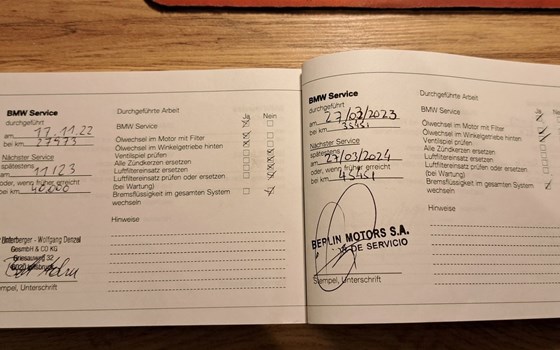 BMW Service
durchgeführt
am 17.11.22
bei km 27973
Nächster Service
spätestens
am 11/23
oder, wenn früher erreicht
bei km
Durchgeführte Arbeit
Ja Nein
BMW Service
Ölwechsel im Motor mit Filter
Ölwechsel im Winkelgetriebe hinten
Ventilspiel prüfen
Alle Zündkerzen ersetzen
Luftfiltereinsatz ersetzen
Luftfiltereinsatz prüfen oder ersetzen
(bei Wartung)
Bremsflüssigkeit im gesamten System
wechseln
Hinweise
Unterberger - Wolfgang Denzel
GesmbH & CO KG
Griesauweg 32
6020 Innsbruck
Stempel, Unterschrift
BMW Service
durchgeführt
am 27/03/2023
bei km 35451
Nächster Service
spätestens
am 27/03/2024
oder, wenn früher erreicht
bei km 45451
Durchgeführte Arbeit
Ja Nein
BMW Service
Ölwechsel im Motor mit Filter
Ölwechsel im Winkelgetriebe hinten
Ventilspiel prüfen
Alle Zündkerzen ersetzen
Luftfiltereinsatz ersetzen
Luftfiltereinsatz prüfen oder ersetzen
(bei Wartung)
Bremsflüssigkeit im gesamten System
wechseln
Hinweise
BERLIN MOTORS S.A.
DE SERVICIO
Stempel, Unterschrift